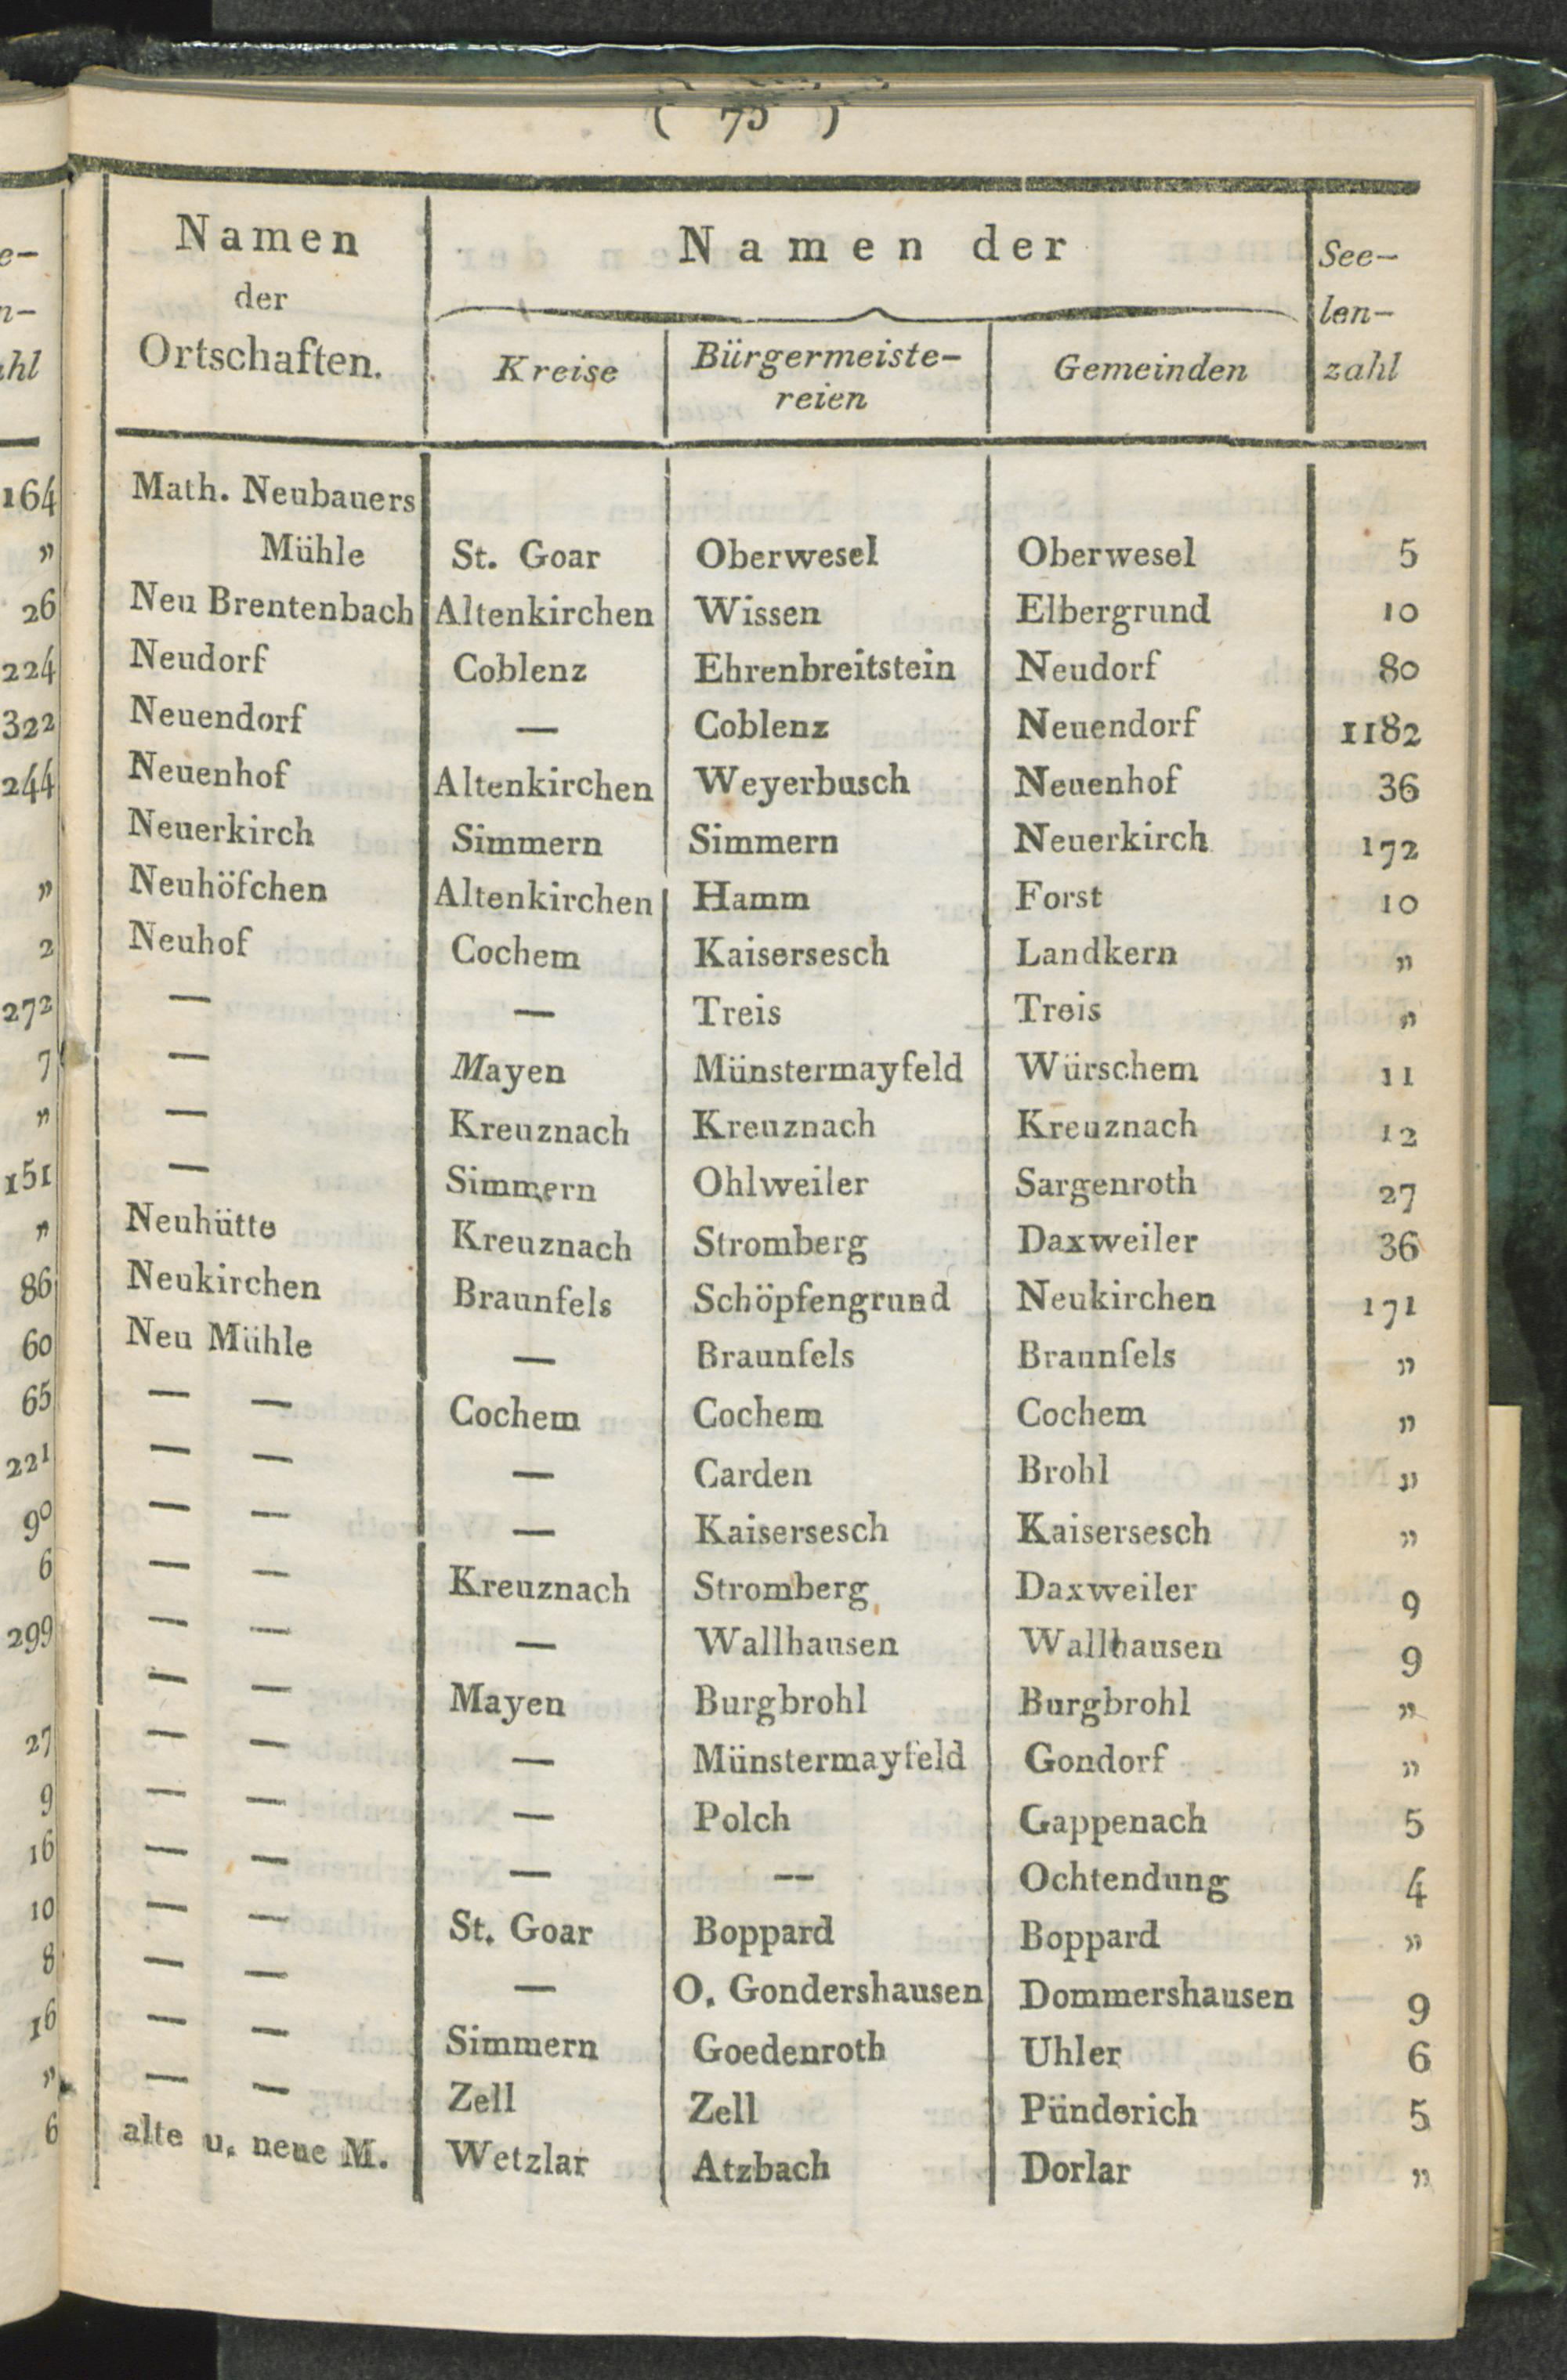 ( 75 )
Namen der Ortschaften. | Namen der | Seelenzahl
Kreise | Bürgermeiste-reien | Gemeinden
Math. Neubauers
Mühle | St. Goar | Oberwesel | Oberwesel | 5
Neu Brentenbach | Altenkirchen | Wissen | Elbergrund | 10
Neudorf | Coblenz | Ehrenbreitstein | Neudorf | 80
Neuendorf | — | Coblenz | Neuendorf | 1182
Neuenhof | Altenkirchen | Weyerbusch | Neuenhof | 36
Neuerkirch | Simmern | Simmern | Neuerkirch | 172
Neuhöfchen | Altenkirchen | Hamm | Forst | 10
Neuhof | Cochem | Kaisersesch | Landkern | „
— | — | Treis | Treis | „
— | Mayen | Münstermayfeld | Würschem | 11
— | Kreuznach | Kreuznach | Kreuznach | 12
— | Simmern | Ohlweiler | Sargenroth | 27
Neuhütte | Kreuznach | Stromberg | Daxweiler | 36
Neukirchen | Braunfels | Schöpfengrund | Neukirchen | 171
Neu Mühle | — | Braunfels | Braunfels | „
— — | Cochem | Cochem | Cochem | „
— — | — | Carden | Brohl | „
— — | — | Kaisersesch | Kaisersesch | „
— — | Kreuznach | Stromberg | Daxweiler | 9
— — | — | Wallhausen | Wallhausen | 9
— — | Mayen | Burgbrohl | Burgbrohl | „
— — | — | Münstermayfeld | Gondorf | „
— — | — | Polch | Gappenach | 5
— — | — | — | Ochtendung | 4
— — | St. Goar | Boppard | Boppard | „
— — | — | O. Gondershausen | Dommershausen | 9
— — | Simmern | Goedenroth | Uhler | 6
— — | Zell | Zell | Pünderich | 5
alte u. neue M. | Wetzlar | Atzbach | Dorlar | „